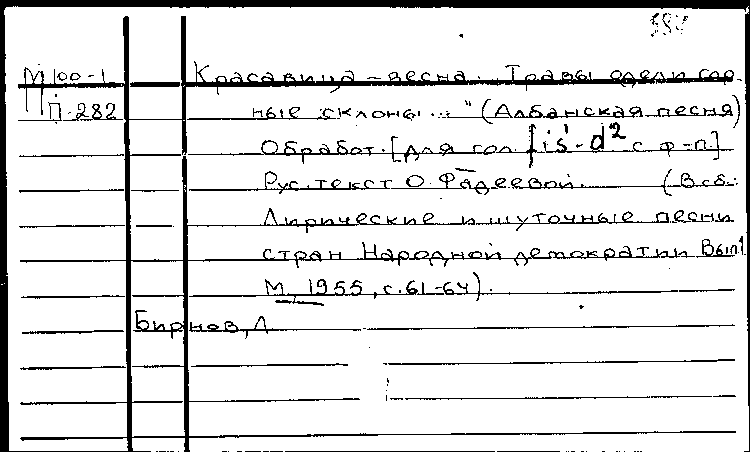 М100-1 Красавица-весна. Травы одели гор-
П-282 ные склоны..." (Албанская песня)
Обработ. [для гол. fis'-d² с ф-п.]
Рус. текст О. Фадеевой. (В сб.:
Лирические и шуточные песни
стран Народной демократии Вып1
М, 1955, с. 61-64).
Бирнов, Л.